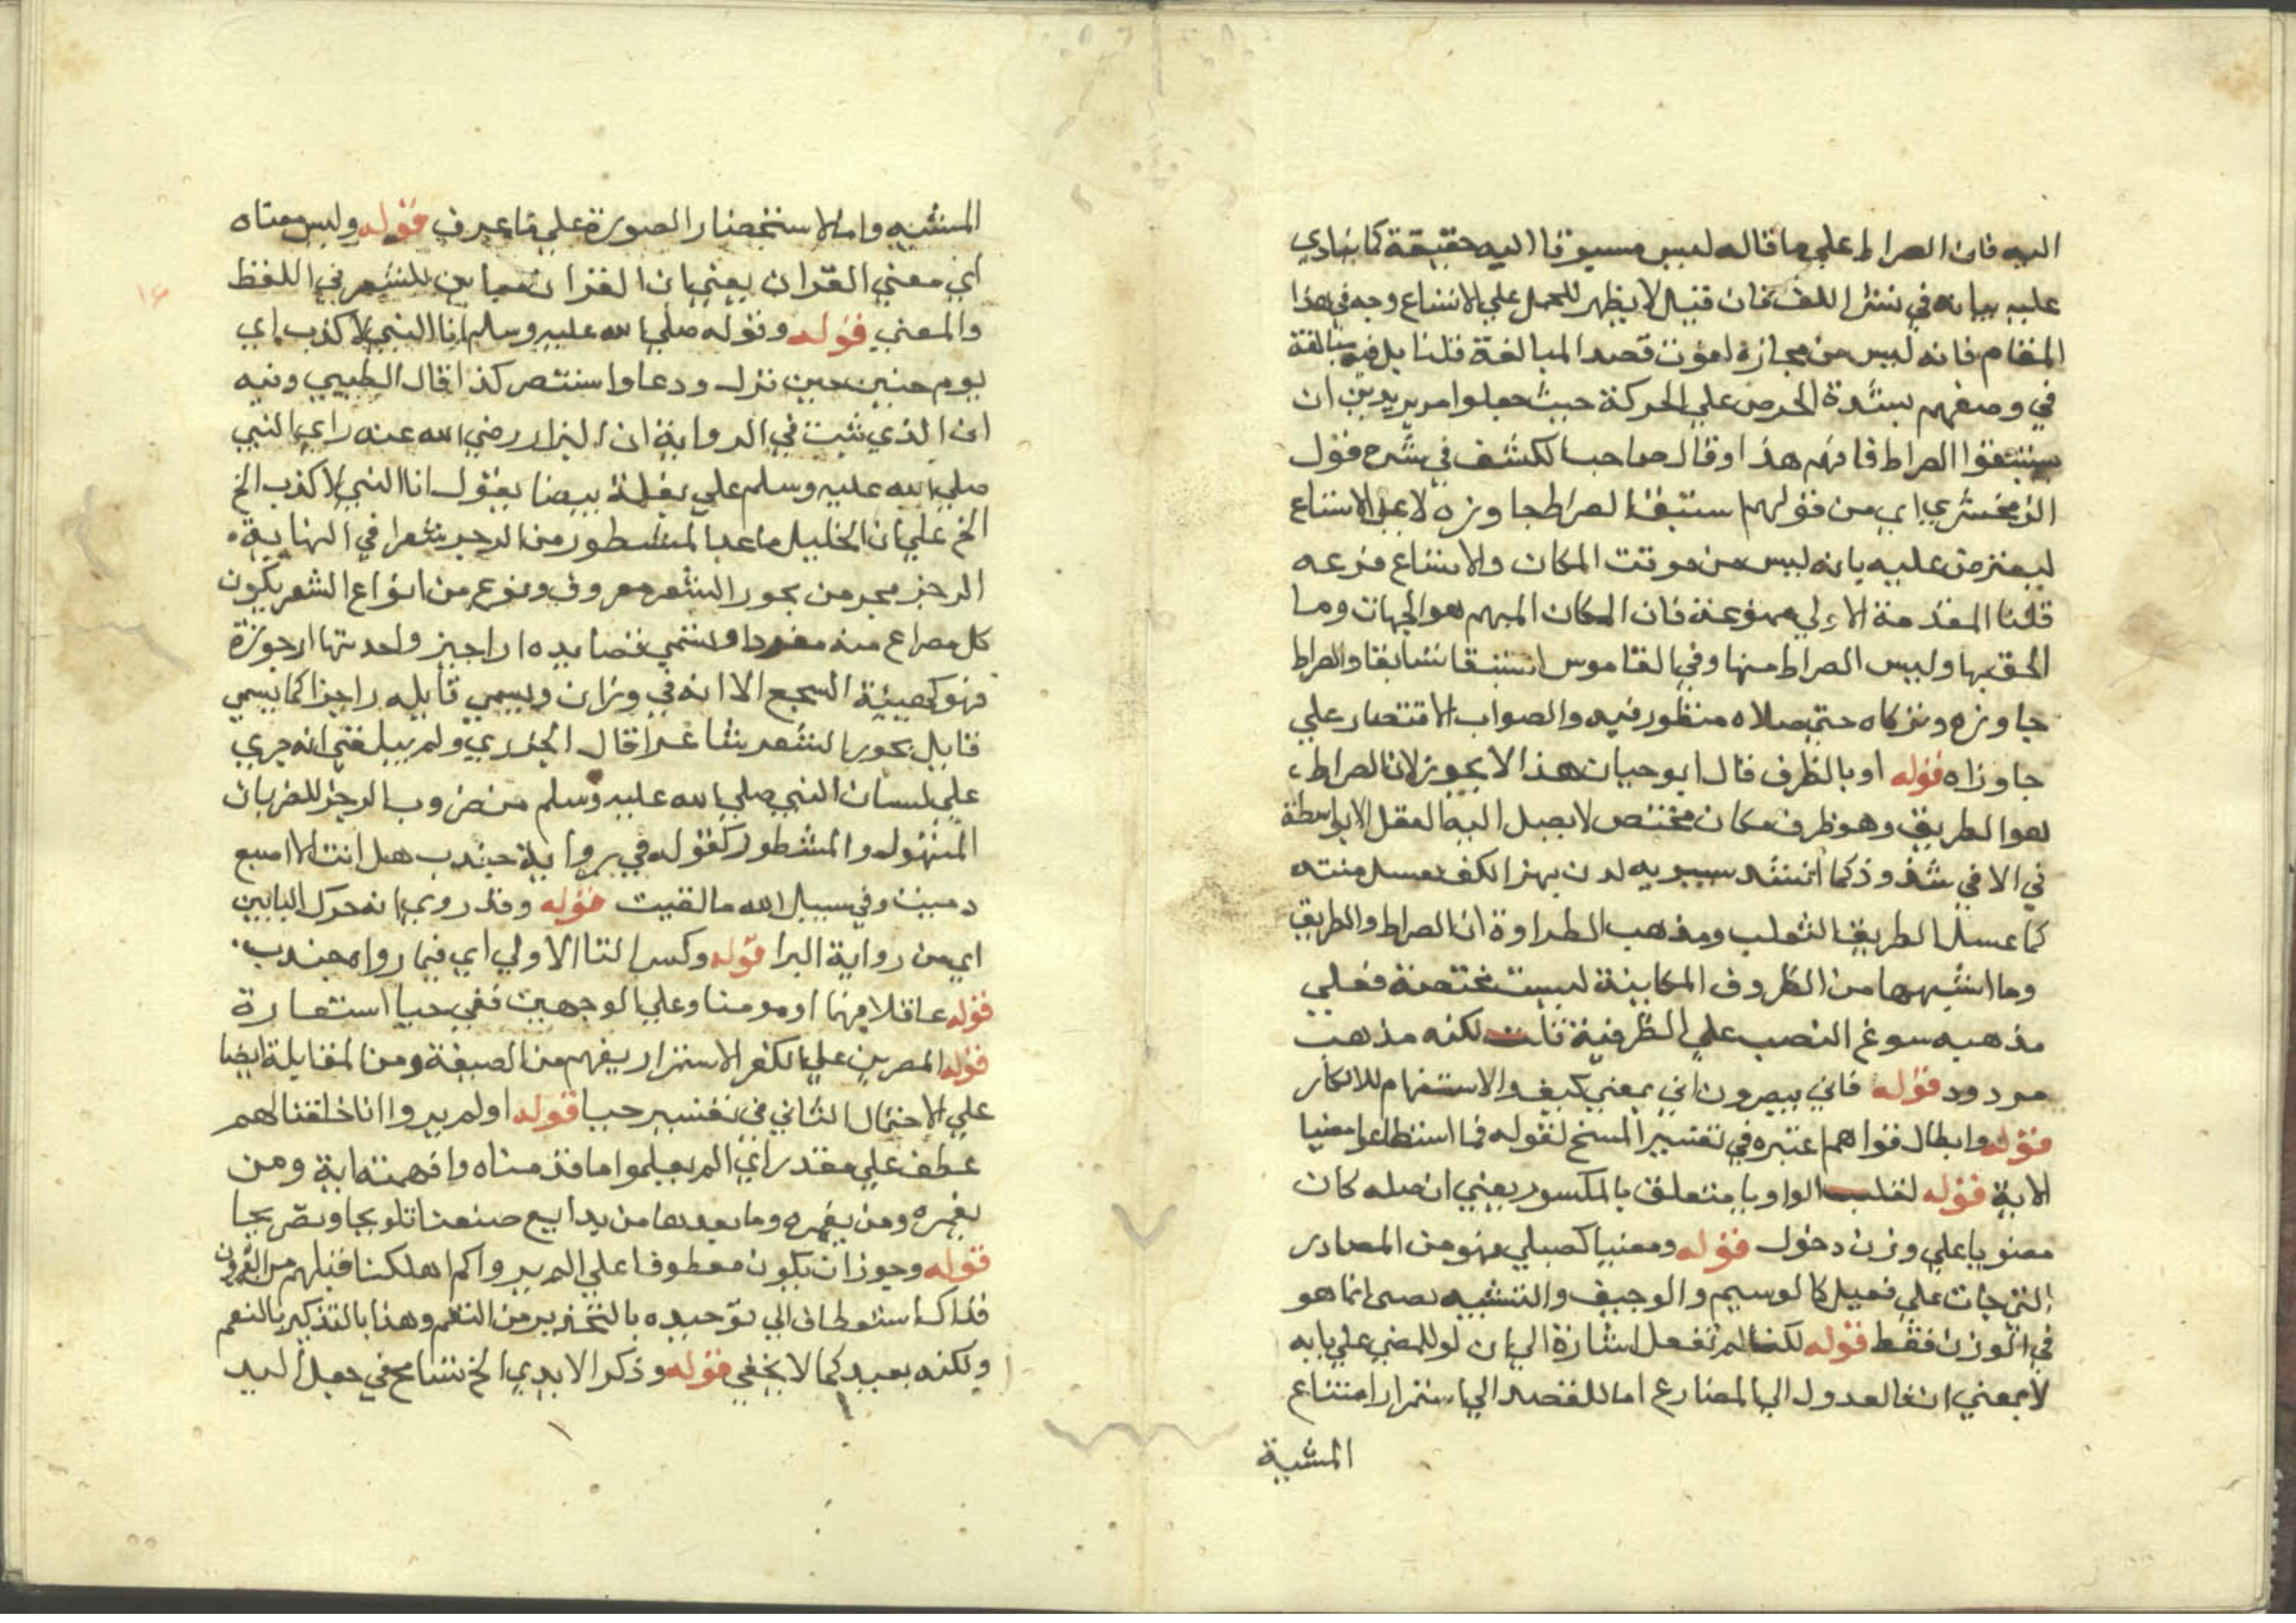 اليه فان الصراط علي ما قاله ليس مسبوقا اليه حقيقة كما ينادي
عليه بيانه في نشر اللف فان قيل لا يظهر للحمل علي الاتساع وجه في هذا
المقام فانه ليس من مجازه لفوت قصد المبالغة قلنا بل فيه مبالغة
في وصفهم بشدة الحرص علي الحركة حيث جعلوا مريدين ان
يستبقوا الصراط فافهم هذا وقال صاحب الكشف في شرح قول
الزمخشري اي من قولهم استبقا الصراط جاوزه لا علي الاتساع
ليعترض عليه بانه ليس من موقت المكان والاتساع فرعه
قلنا المقدمة الاولي ممنوعة فان المكان المبهم هو الجهات وما
الحق بها وليس الصراط منها وفي القاموس استبقا تسابقا والصراط
جاوزه وتركاه حتي ضلاه منظور فيه والصواب الاقتصار علي
جاوزاه قوله او بالظرف قال ابو حيان هذا لا يجوز لان الصراط
هو الطريق وهو ظرف مكان مختص لا يصل اليه الفعل الا بواسطة
في الا في شذوذ كما انشد سيبويه لدن بهز الكف يعسل متنه
كما عسل الطريق الثعلب ومذهب ابن الطراوة ان الصراط والطريق
وما اشبهها من الظروف المكانية ليست مختصة فعلي
مذهبه سوغ النصب علي الظرفية لكنه مذهب
مردود قوله فاني يبصرون اني بمعني كيف والاستفهام للانكار
قوله وابطال قواهم اعتبره في تفسير المسخ لقوله فما استطاعوا مضيا
الاية قوله لقلب الواو يا متعلق بالمكسور يعني ان اصله كان
مضويا علي وزن دخول قوله ومضيا كصبي فهو من المصادر
التي جات علي فعيل كالوسيم والوجيف والتشبيه بصبي انما هو
في الوزن فقط قوله لكنا لم نفعل اشارة الي ان لو للمضي علي بابه
لا بمعني ان فالعدول الي المضارع اما للقصد الي استمرار امتناع
المشية
المشيه واما الاستحضار الصورة علي ما عرف قوله وليس معناه
اي معني القران يعني بان القران مباين للشعر في اللفظ
والمعني قوله وقوله صلي الله عليه وسلم انا النبي لا كذب اي
يوم حنين حين نزل ودعا واستنصر كذا قال الطيبي وفيه
ان الذي ثبت في الرواية ان البزار رضي الله عنه راي النبي
صلي الله عليه وسلم علي بغلة بيضا يقول انا النبي لا كذب الخ
الخ علي ان الخليل ما عد المشطور من الرجز شعرا في النهاية
الرجز بحر من بحور الشعر معروف ونوع من انواع الشعر يكون
كل مصراع منه مفردا وتسمي قصايده اراجيز واحدتها ارجوزة
فهو كهيئة السجع الا انه في وزان ويسمي قايله راجزا كما يسمي
قايل بحور الشعر شاعرا قال الجزري ولم يبلغني انه جري
علي لسان النبي صلي الله عليه وسلم من ضروب الرجز الا ضربان
المنهوك والمشطور كقوله في رواية جندب هل انت الا اصبع
دميت وفي سبيل الله ما لقيت قوله وقد روي انه حرك البابين
اي من رواية البرا قوله وكسر التا الاولي اي فيما رواه جندب
قوله عاقلا فهما او مومنا وعلي الوجهين ففي حيا استعارة
قوله المصرين علي الكفر الاستمرار يفهم من الصيغة ومن المقابلة ايضا
علي الاحتمال الثاني في تفسير حيا قوله اولم يروا انا خلقنا لهم
عطف علي مقدر اي الم يعلموا ما قدمناه وافهمته اية ومن
نعمره ومن نعمره وما بعدها من بدايع صنعنا تلويحا وتصريحا
قوله وجوز ان يكون معطوفا علي الم يروا كم اهلكنا قبلهم من القرون
فذاك استعطاف الي توحيده بالتحذير من النقم وهذا بالتذكير بالنعم
ولكنه بعيد كما لا يخفي قوله وذكر الايدي الخ تسامح في جعل اليد